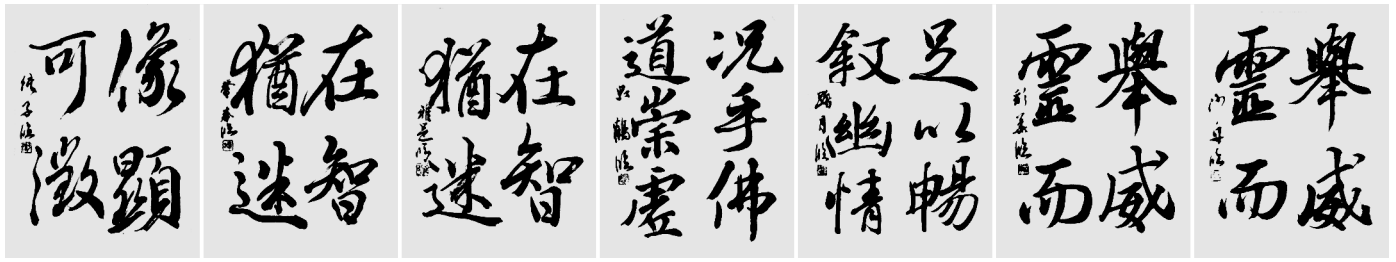 像顯
可徵
在智
猶迷
在智
猶迷
况乎佛
道崇虛
足以暢
叙幽情
踏月临
舉威
靈而
舉威
靈而